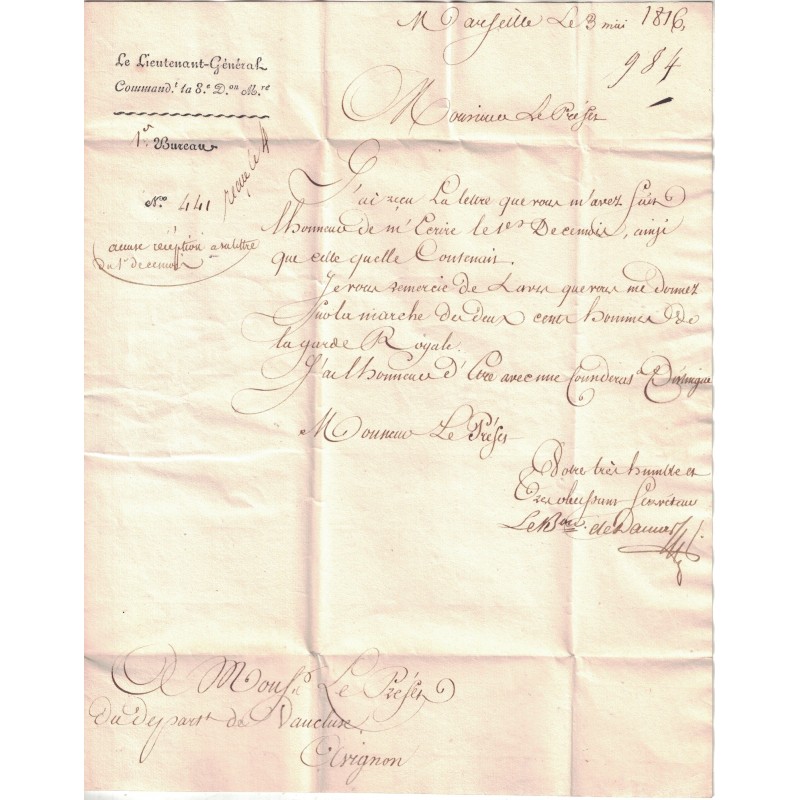 Marseille Le 3 mai 1816,
984
Le Lieutenant-Général
Command.t la 8.e D.on M.re
Monsieur Le Préfet
1er Bureau
reçu le 4
N.o 441
accusé réception a sa lettre
du 1er de ce mois
J'ai reçu La lettre que vous m'avez fait
lhonneur de m'Ecrire le 1er De ce mois, ainsi
que celle quelle Contenait.
Je vous remercie de Lavis que vous me donnez
sur la marche de deux cent hommes de
la garde Royale.
J'ai lhonneur d'Etre avec une Considerat.n Distinguée
Monsieur Le Préfet
Votre très humble et
très obeissant Serviteur
Le B.on de Damas
A Mons.r Le Préfet
du départ.t de Vaucluse,
Avignon